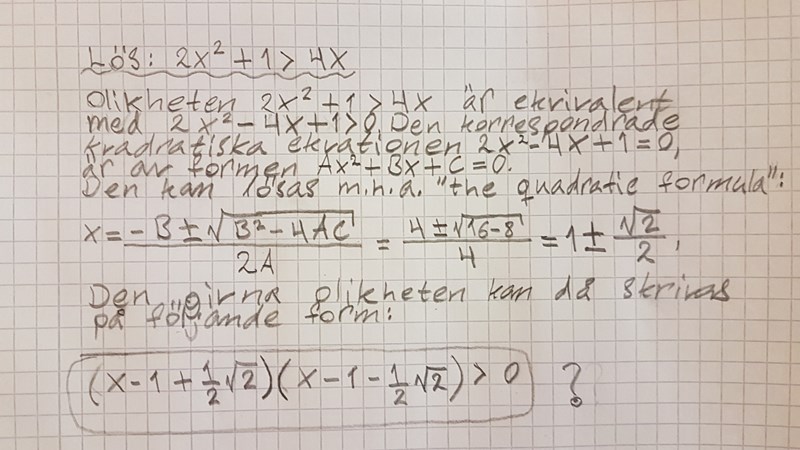 Lös: 2x² + 1 > 4x
Olikheten 2x² + 1 > 4x är ekvivalent
med 2x² - 4x + 1 > 0. Den korrespondrade
kvadratiska ekvationen 2x² - 4x + 1 = 0,
är av formen Ax² + Bx + C = 0.
Den kan lösas m.h.a. "the quadratic formula":
x = (-B ± √(B² - 4AC))/2A = (4 ± √(16-8))/4 = 1 ± √2/2,
Den givna olikheten kan då skrivas
på följande form:
(x - 1 + 1/2 √2)(x - 1 - 1/2 √2) > 0 ?